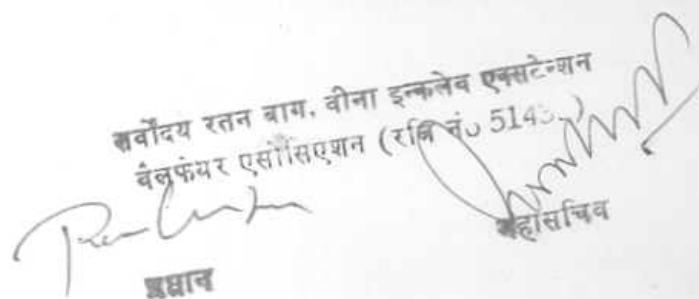 सर्वोदय रतन बाग, वीना इन्कलेव एक्सटेन्शन
वैलफेयर एसोसिएशन (रजि नं०
महासचिव
प्रधान